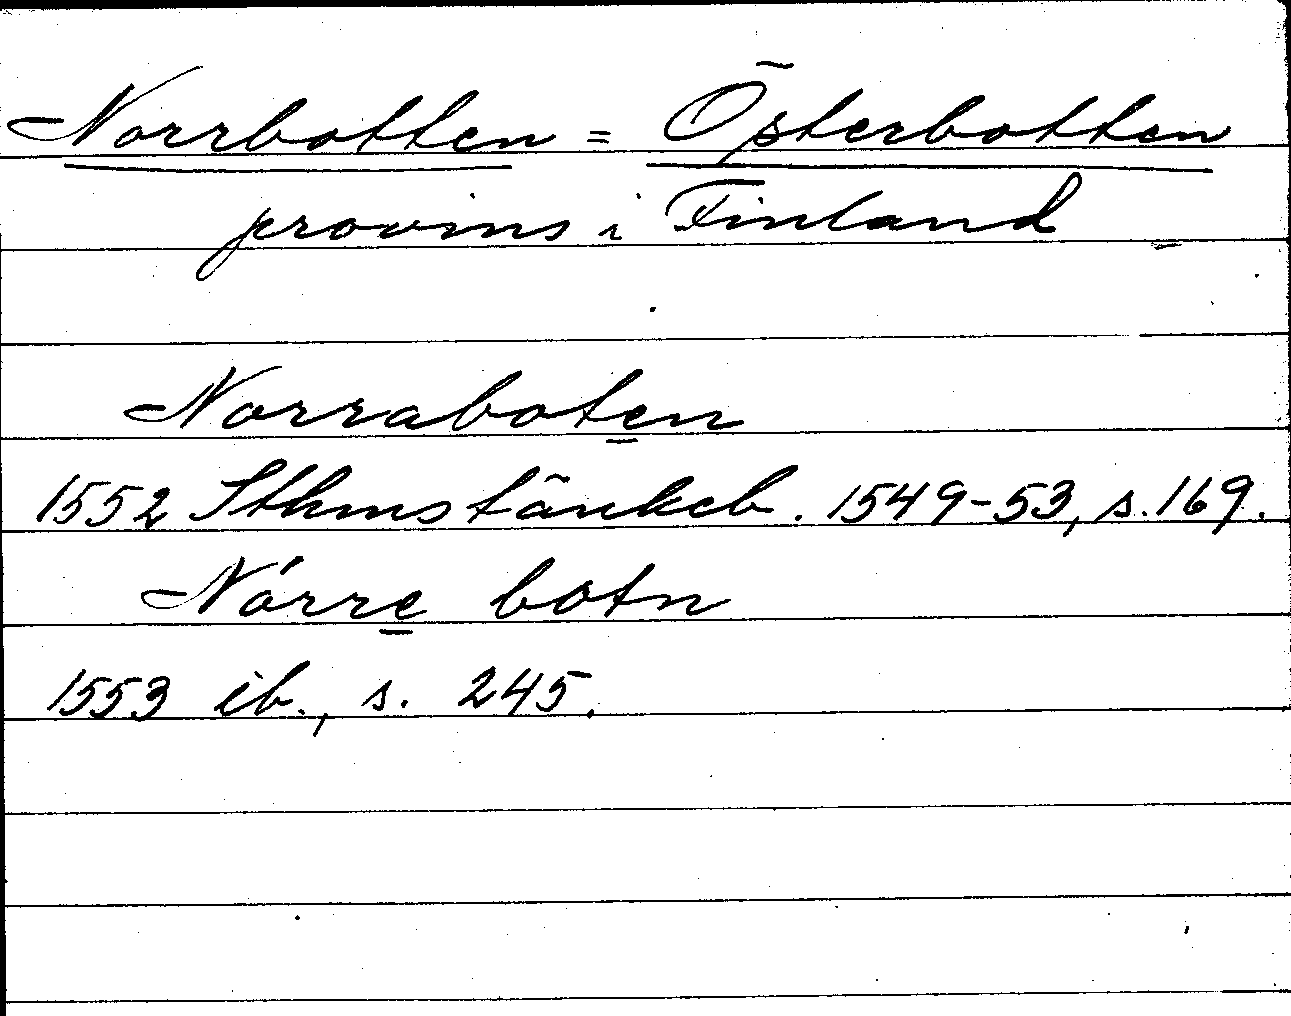 Norrbotten = Österbotten
provins i Finland
Norraboten
1552 Sthms tänkeb. 1549-53, s. 169.
Nórre botn
1553 ib., s. 245.